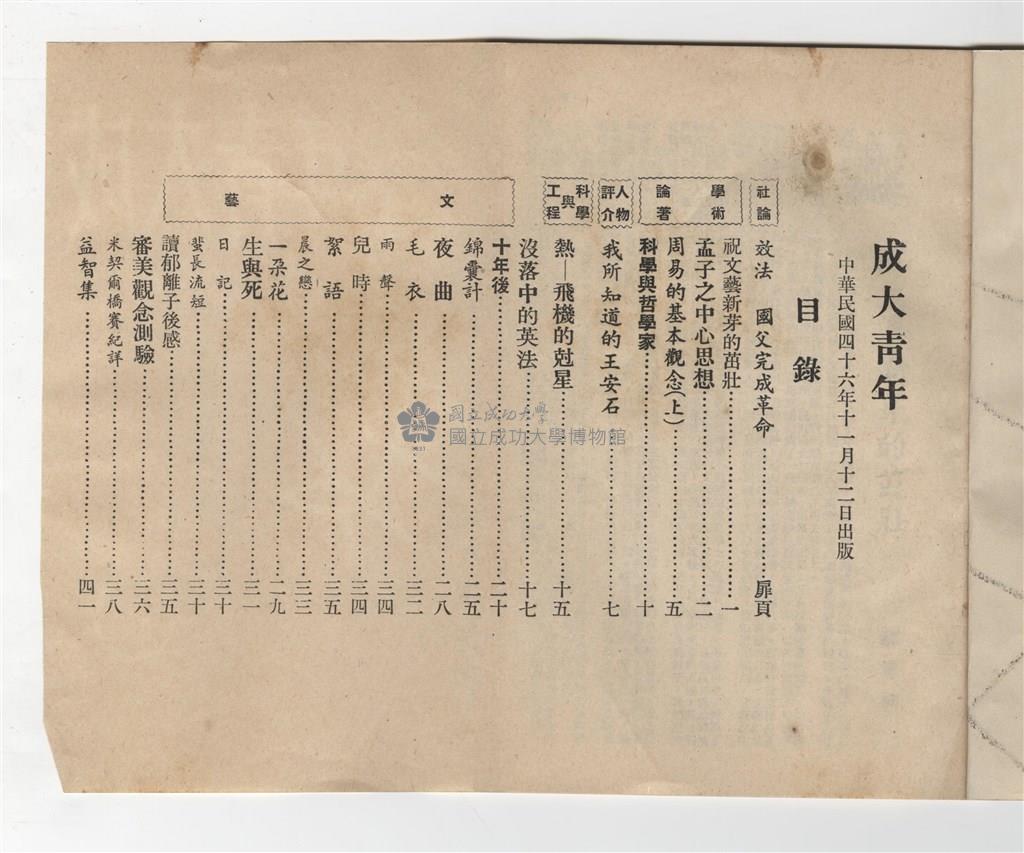 成大青年
中華民國四十六年十一月十二日出版
目錄
社論
效法 國父完成革命……扉頁
學術論著
祝文藝新芽的茁壯……一
孟子之中心思想……二
周易的基本觀念(上)……五
科學與哲學家……十
人物評介
我所知道的王安石……七
科學與工程
熱—飛機的尅星……十五
沒落中的英法……十七
文藝
十年後……二十
錦囊計……二五
夜曲……二八
毛衣……三二
雨聲……三四
兒時……三四
絮語……三五
晨之戀……三三
一朵花……二九
生與死……三一
日記……三十
裴長流短……三十
讀郁離子後感……三五
審美觀念測驗……三六
米契爾橋賽紀詳……三八
益智集……四一
國立成功大學
國立成功大學博物館
1931